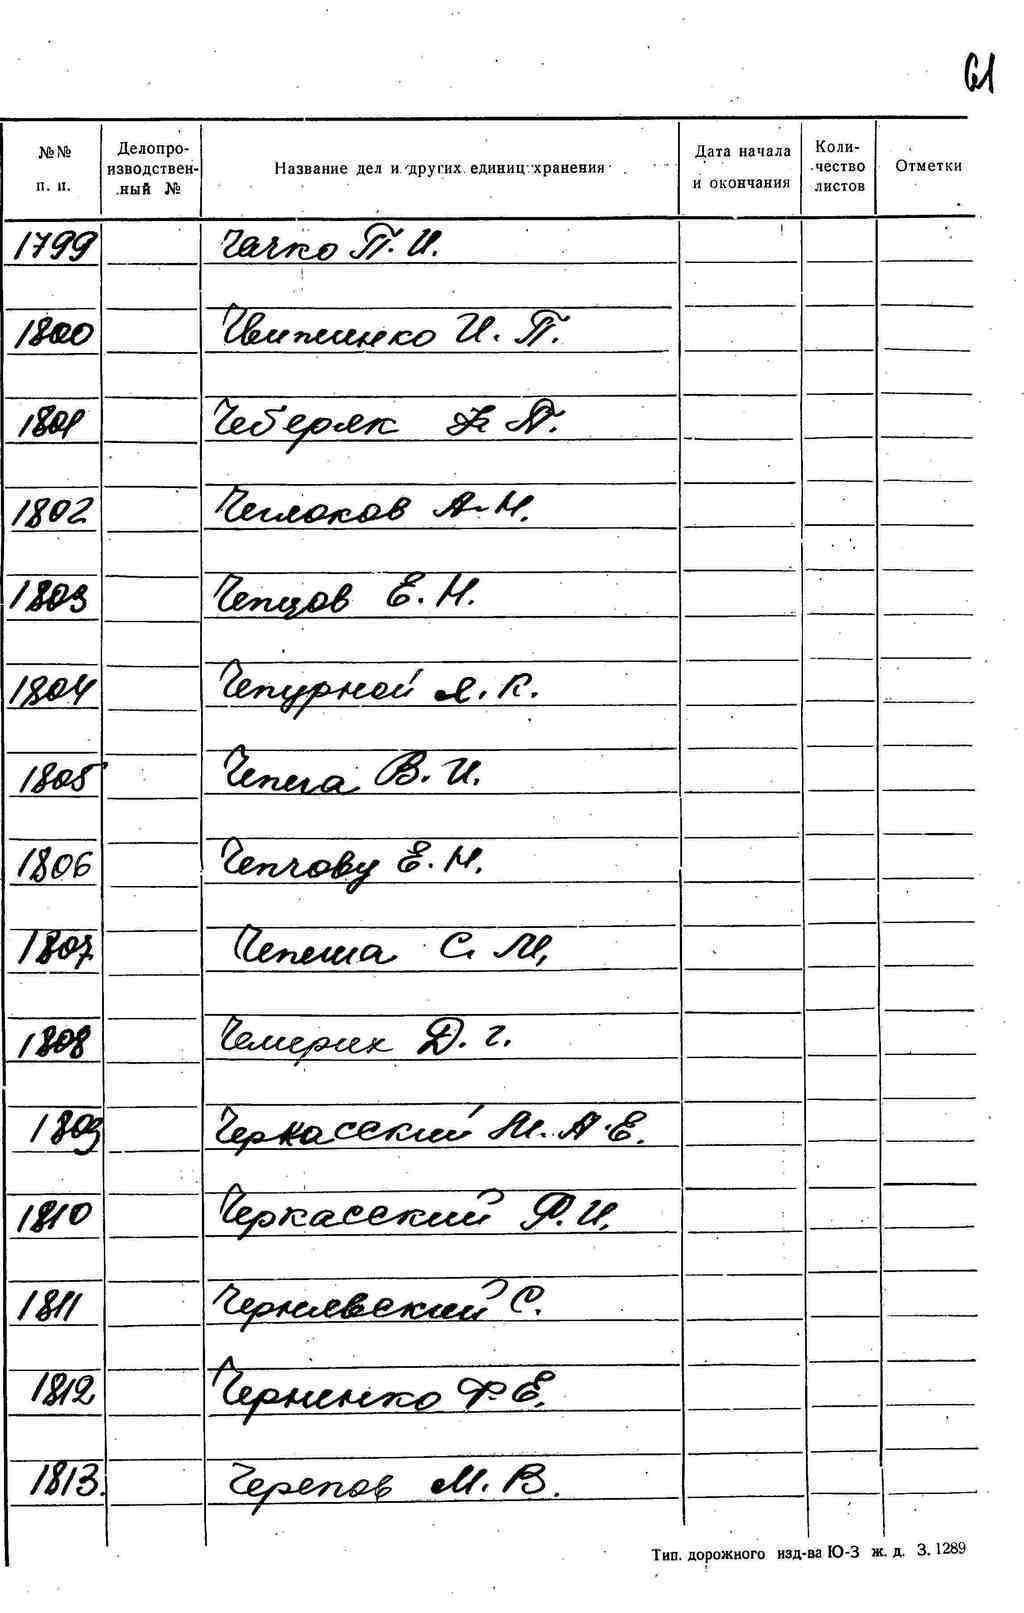 61
№№ п. п. Делопроизводствен-ный № Название дел и других единиц хранения Дата начала и окончания Коли-чество листов Отметки
1799 Чачко П. И.
1800 И. П.
1801 Чеберяк П.
1802 Чеглоков А. Н.
1803 Чепцов Е. Н.
1804 Чепурной Я. К.
1805 Чепега В. И.
1806 Чепчову Е. Н.
1807 Чепеша С. М.
1808 Чемерих Д. Г.
1809 Черкасский М. А. Е.
1810 Черкасский Ф. И.
1811 Чернявский С.
1812 Черненко Ф. Е.
1813. Черепов М. В.
Тип. дорожного изд-ва Ю-З ж. д. З. 1289